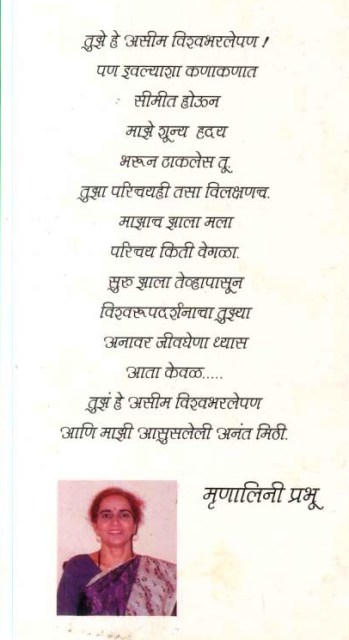 तुझे हे असीम विश्वभरलेपण !
पण इवल्याशा कणाकणात
सीमीत होऊन
माझे शून्य हृदय
भरून टाकलेस तू.
तुझा परिचयही तसा विलक्षणच.
माझाच झाला मला
परिचय किती वेगळा.
सुरु झाला तेव्हापासून
विश्वरूपदर्शनाचा तुझ्या
अनावर जीवघेणा ध्यास
आता केवळ.....
तुझं हे असीम विश्वभरलेपण
आणि माझी आसुसलेली अनंत मिठी.
मृणालिनी प्रभू